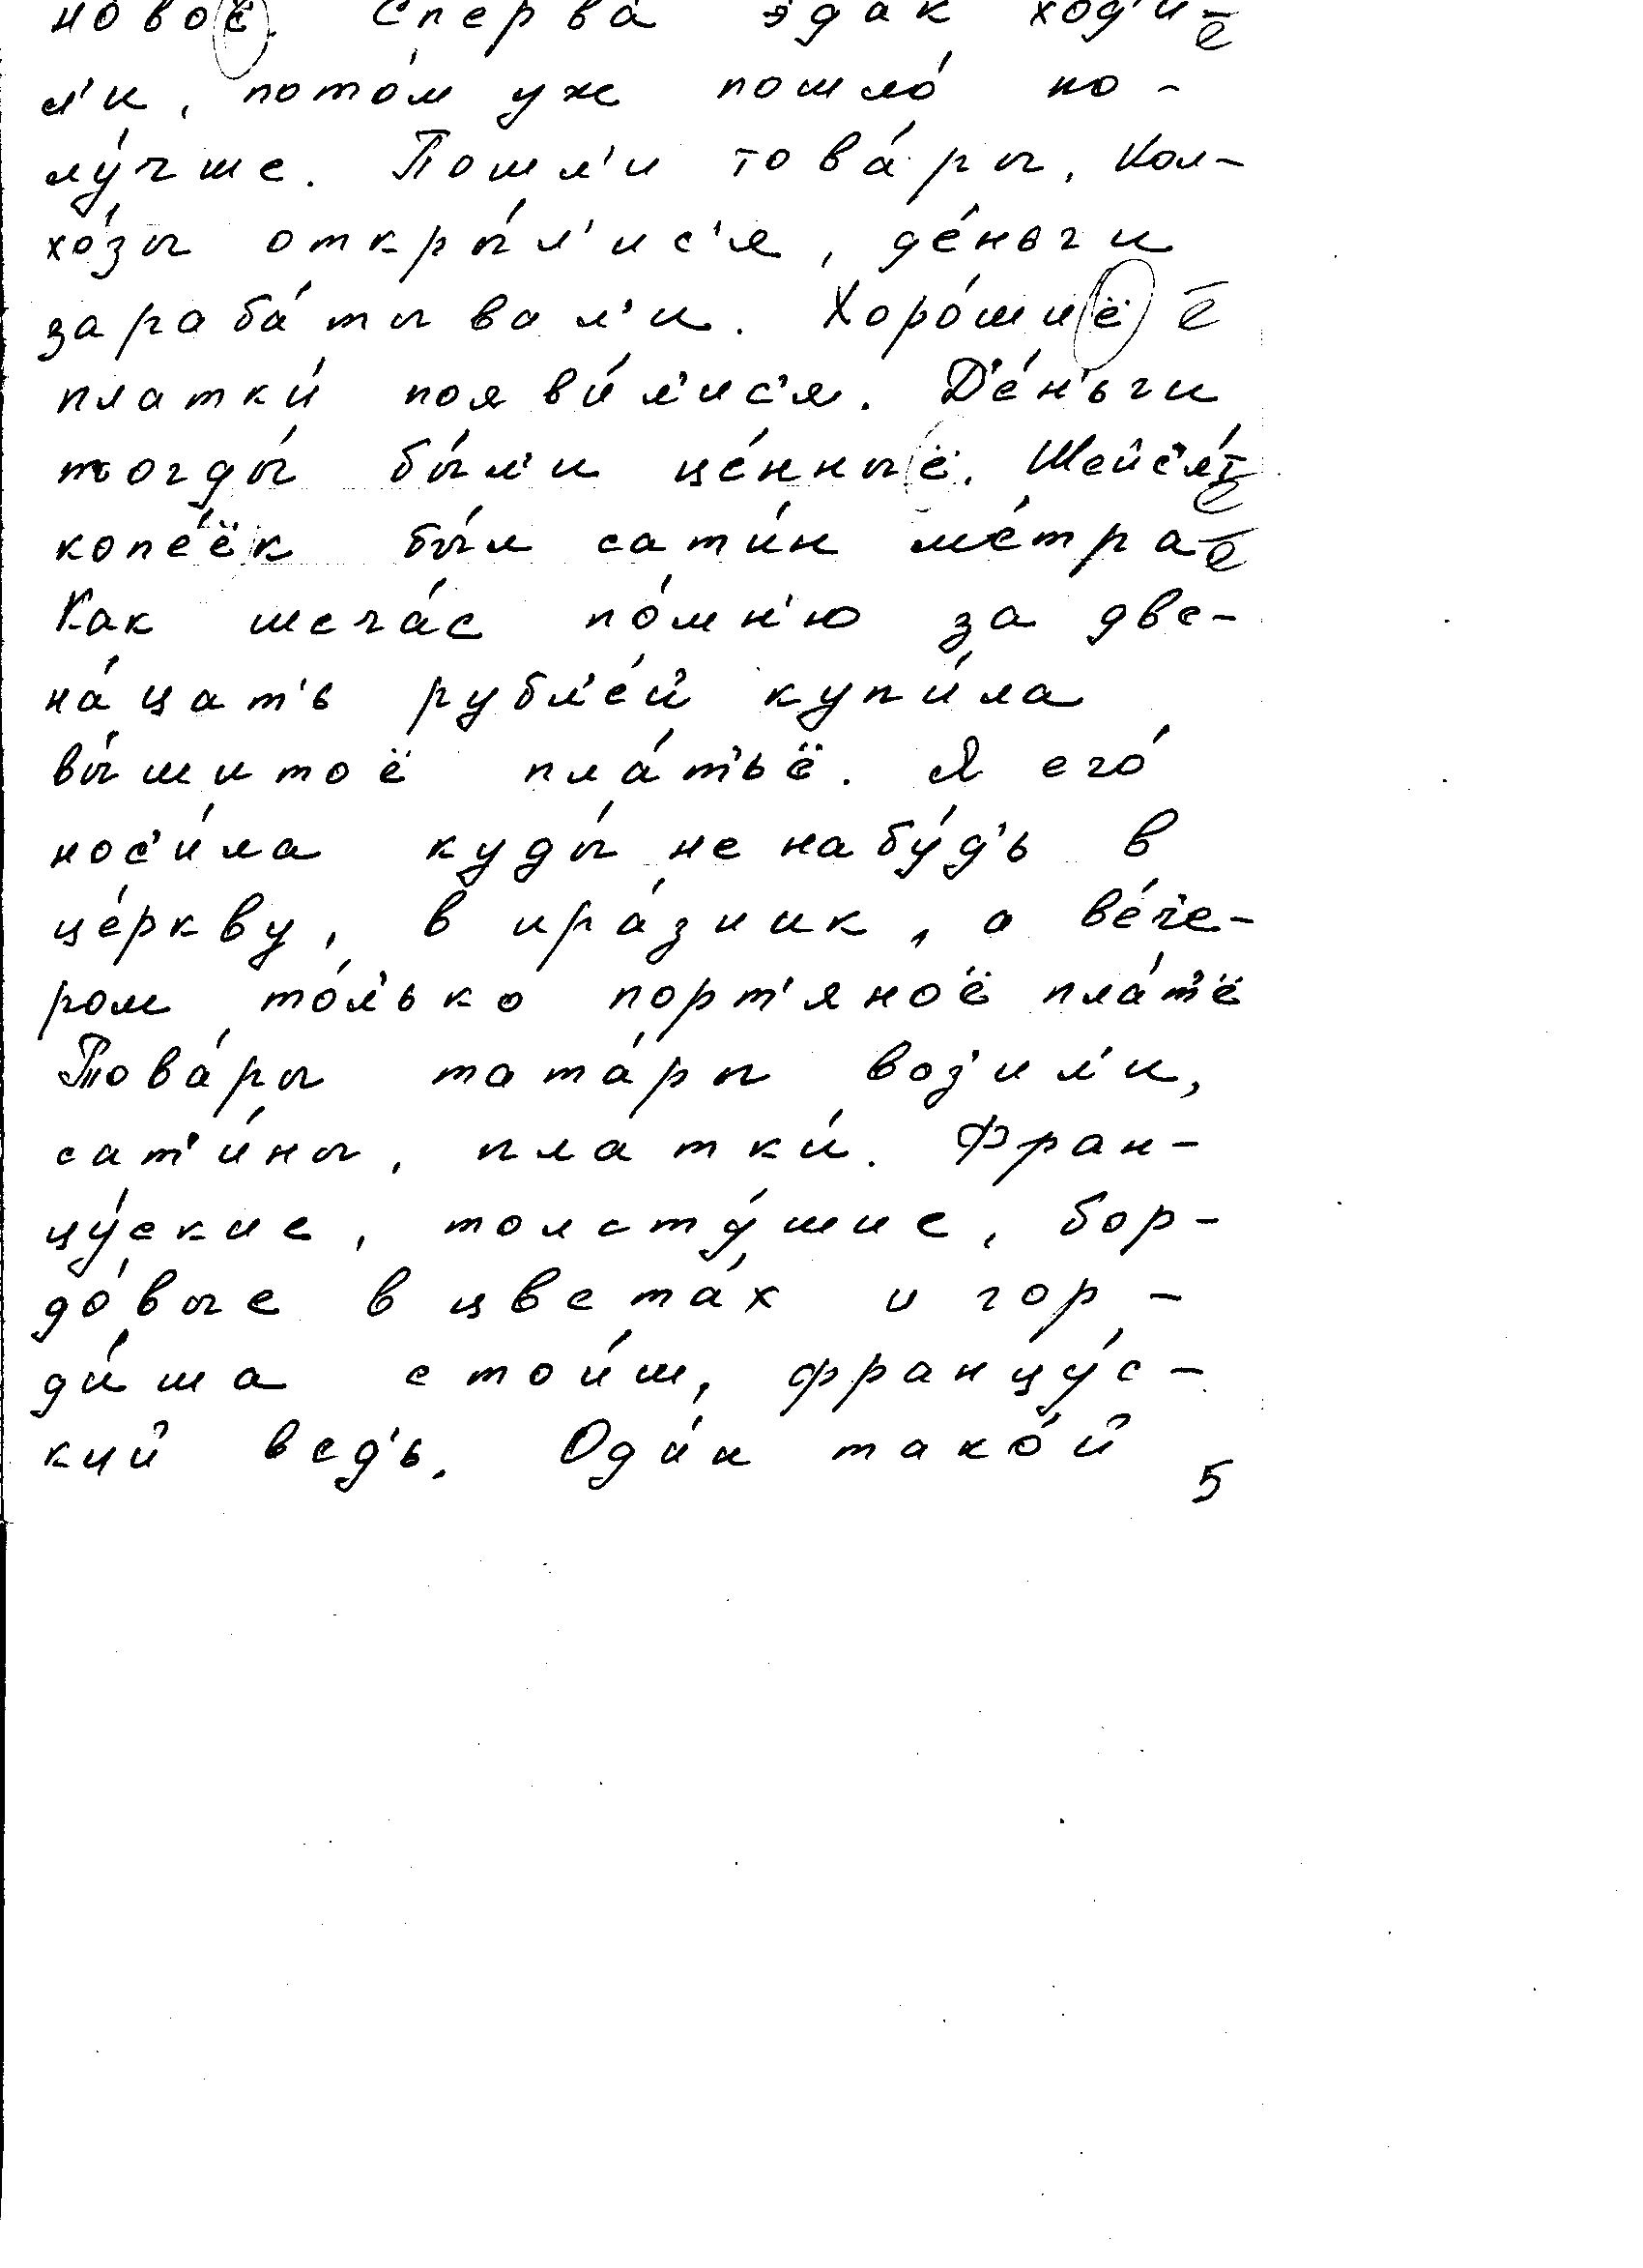 ново́ё. Сперва́ э́дак ход'и́- ē
л'и, пото́м уж пошло́ по-
лу́чше. Пошл'и това́ры, Кол-
хо́зы откры́л'ис'я, де́ньги
зараба́тывал'и. Хоро́шиё ē
платки́ појави́л'ис'я. Д'е́н'ьги
тогды́ бы́л'и це́нныё. Шейс'я́т ē
копе́ёк был сати́н ме́тра ē
Как шеча́с по́мн'ю за две-
на́цат'ь рубл'е́й купи́ла
вы́шитоё пла́т'ьё. Я его́
нос'и́ла куды́ не набу́д'ь в
це́ркву, в пра́зник, а ве́че-
ром то́л'ько порт'яноё пла́т'ё
Това́ры тата́ры воз'ил'и,
сат'и́ны, платки́. Фран-
цу́ские, толсту́шие, бор-
до́вые в цвета́х и гор-
ди́ша стои́ш, францу́с-
кий вед'ь. Оди́н тако́й
5